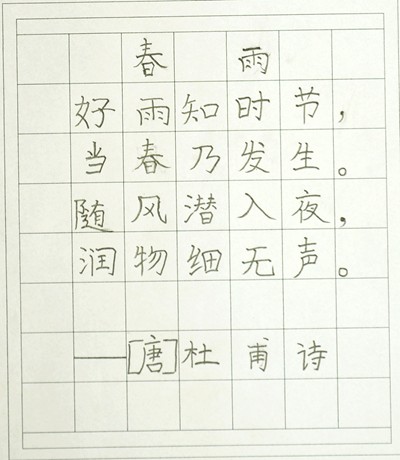 春 雨
好雨知时节，
当春乃发生。
随风潜入夜，
润物细无声。
——[唐]杜甫诗